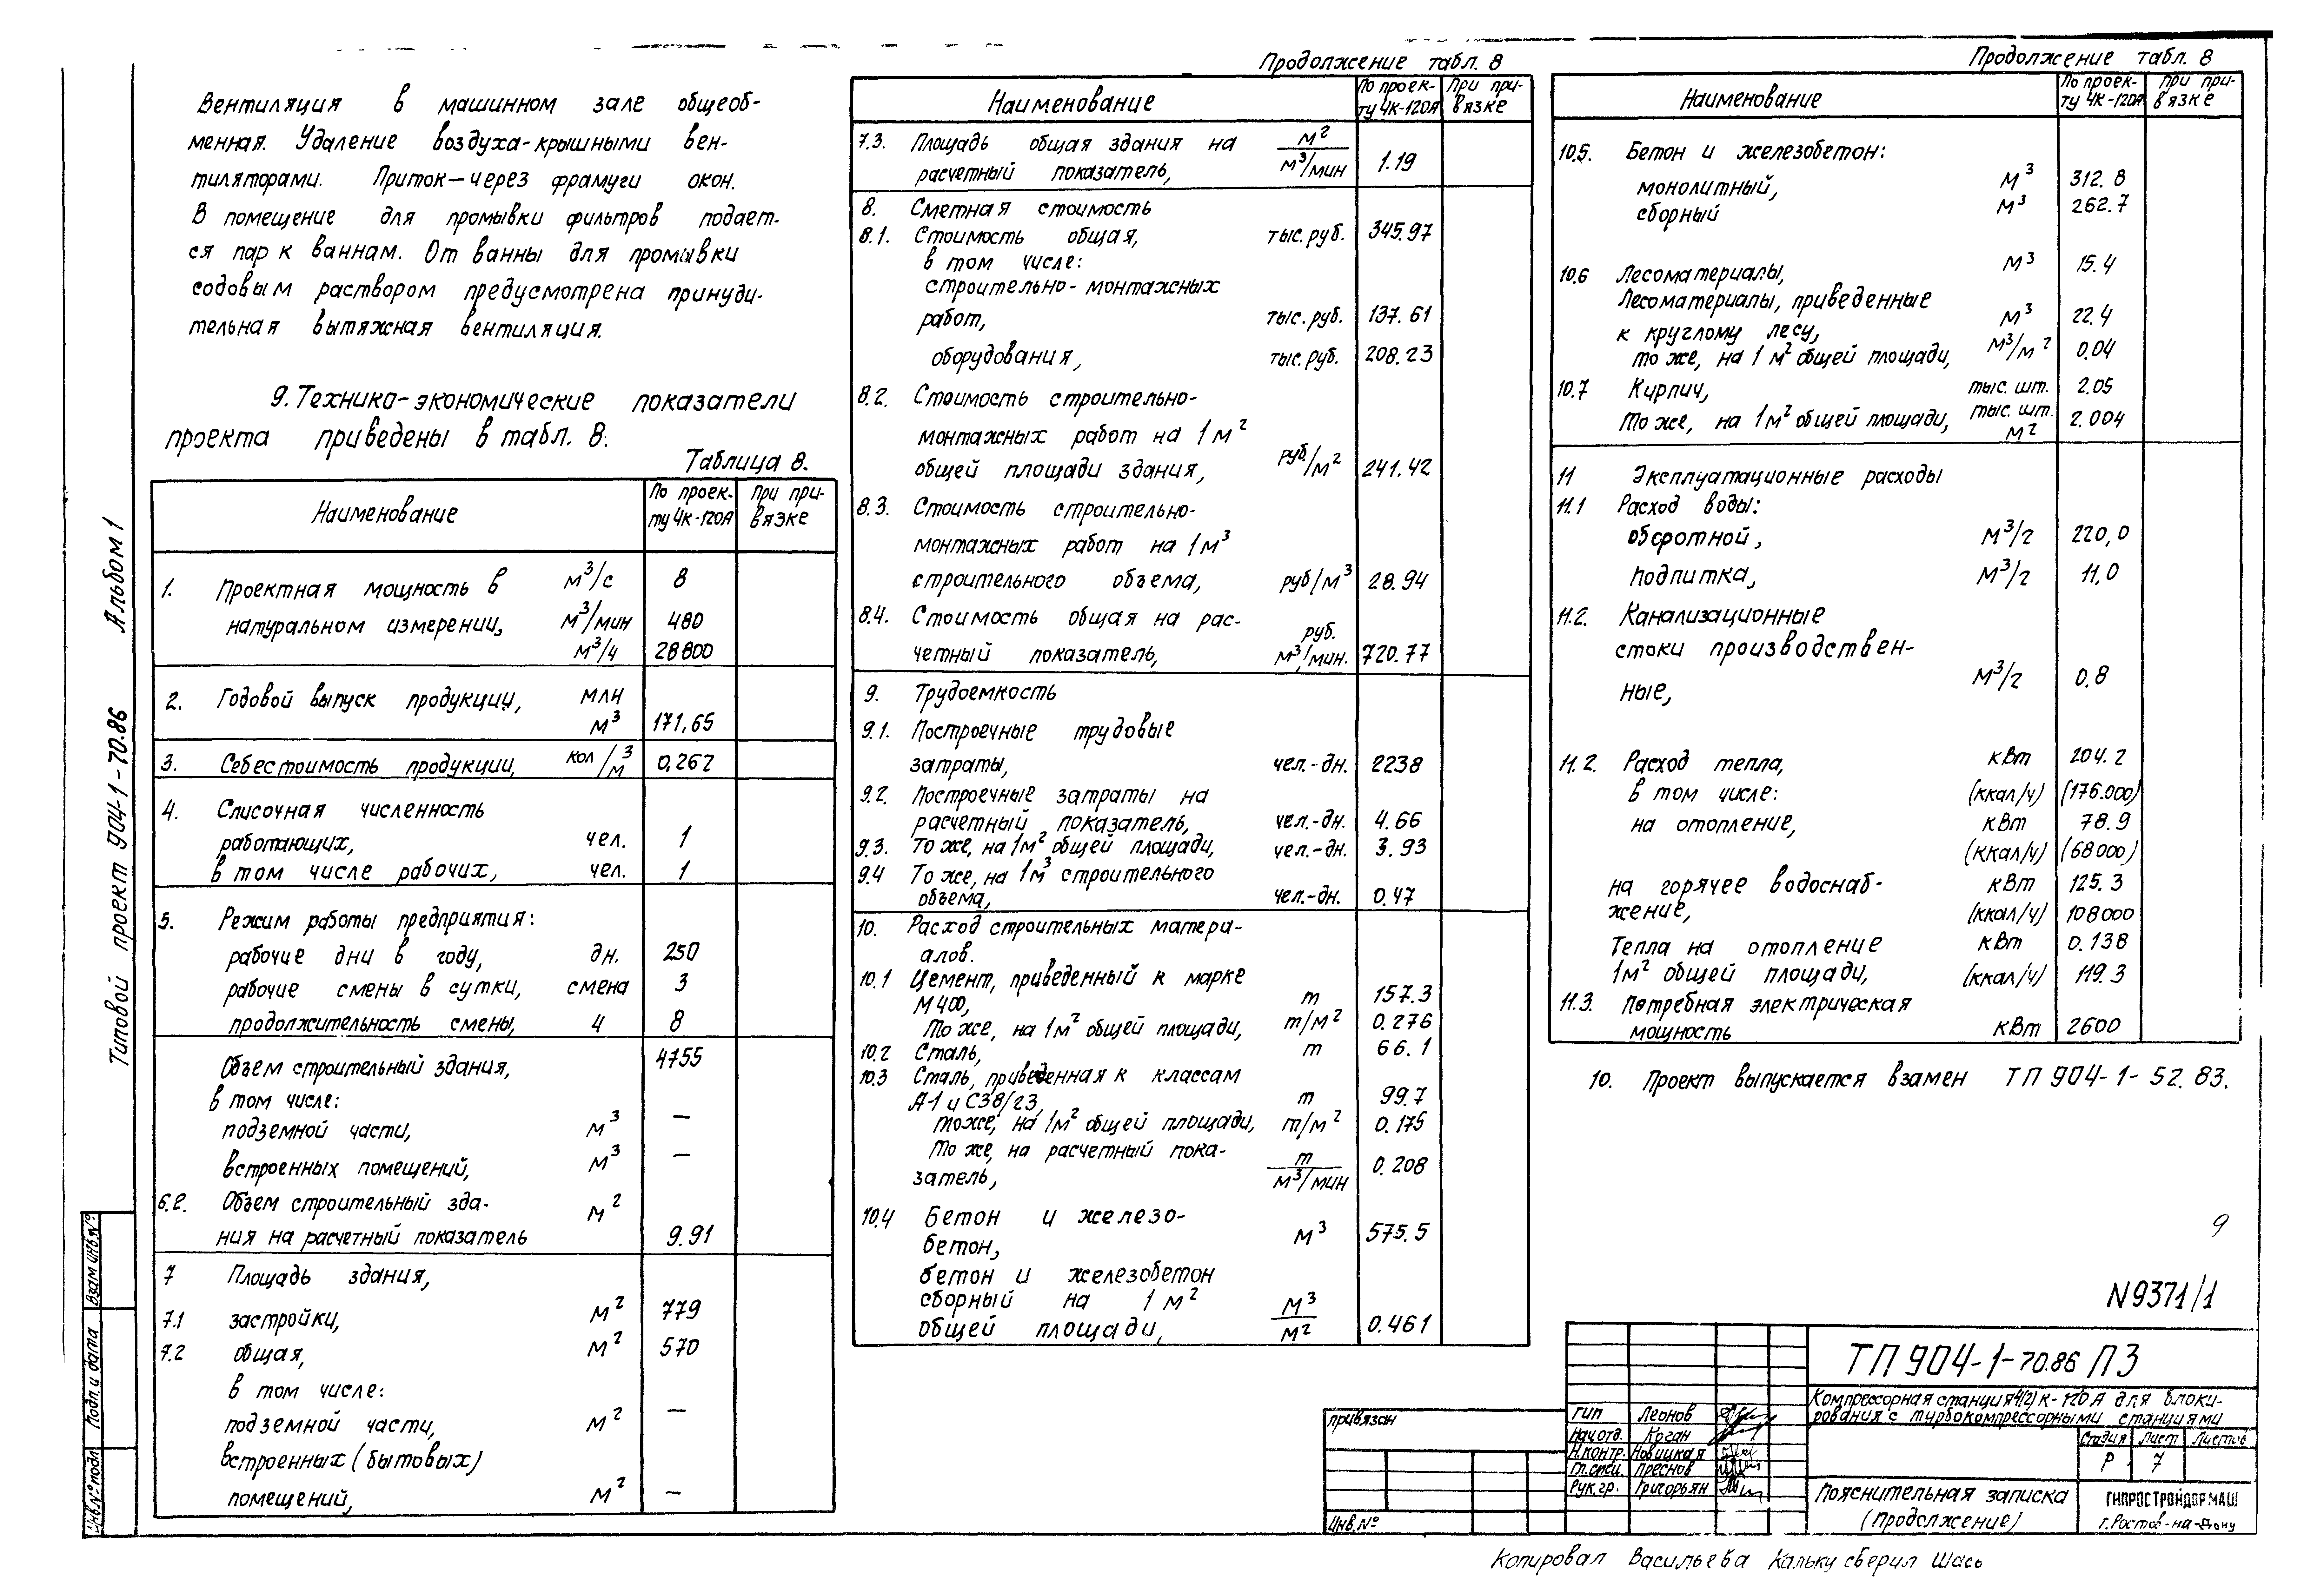 Вентиляция в машинном зале общеоб-
менная. Удаление воздуха-крышными вен-
тиляторами. Приток—через фрамуги окон.
В помещение для промывки фильтров подает-
ся пар к ваннам. От ванны для промывки
содовым раствором предусмотрена принуди-
тельная вытяжная вентиляция.
9. Технико-экономические показатели
проекта приведены в табл. 8.
Таблица 8.
Наименование По проек-ту 4К-120А При при-вязке
1. Проектная мощность в м³/с 8
натуральном измерении, м³/мин 480
м³/ч 28800
2. Годовой выпуск продукции, млн
м³ 171,65
3. Себестоимость продукции, кол/м³ 0,267
4. Списочная численность
работающих, чел. 1
в том числе рабочих, чел. 1
5. Режим работы предприятия:
рабочие дни в году, дн. 250
рабочие смены в сутки, смена 3
продолжительность смены, ч 8
Объем строительный здания, 4755
в том числе:
подземной части, м³ —
встроенных помещений, м³ —
6.2. Объем строительный зда- м²
ния на расчетный показатель 9.91
7 Площадь здания,
7.1 застройки, м² 779
7.2 общая, м² 570
в том числе:
подземной части, м² —
встроенных (бытовых)
помещений, м² —
Продолжение табл. 8
Наименование По проек-ту 4К-120А При при-вязке
7.3. Площадь общая здания на м²
расчетный показатель, м³/мин 1.19
8. Сметная стоимость
8.1. Стоимость общая, тыс. руб. 345.97
в том числе:
строительно-монтажных
работ, тыс. руб. 137.61
оборудования, тыс. руб. 208.23
8.2. Стоимость строительно-
монтажных работ на 1м²
общей площади здания, руб/м² 241.42
8.3. Стоимость строительно-
монтажных работ на 1м³
строительного объема, руб/м³ 28.94
8.4. Стоимость общая на рас- руб.
четный показатель, м³/мин. 720.77
9. Трудоемкость
9.1. Построечные трудовые
затраты, чел.-дн. 2238
9.2. Построечные затраты на
расчетный показатель, чел.-дн. 4.66
9.3. То же, на 1м² общей площади, чел.-дн. 3.93
9.4 То же, на 1м³ строительного
объема, чел.-дн. 0.47
10. Расход строительных матери-
алов.
10.1 Цемент, приведенный к марке
М400, т 157.3
То же, на 1м² общей площади, т/м² 0.276
10.2 Сталь, т 66.1
10.3 Сталь, приведенная к классам
А-1 и С38/23, т 99.7
тоже, на 1м² общей площади, т/м² 0.175
То же, на расчетный пока- т
затель, м³/мин 0.208
10.4 Бетон и железо-
бетон, м³ 575.5
бетон и железобетон
сборный на 1м² м³
общей площади, м² 0.461
Продолжение табл. 8
Наименование По проек-ту 4К-120А При при-вязке
10.5. Бетон и железобетон:
монолитный, м³ 312.8
сборный м³ 262.7
10.6 Лесоматериалы, м³ 15.4
Лесоматериалы, приведенные
к круглому лесу, м³ 22.4
то же, на 1м² общей площади, м³/м² 0.04
10.7 Кирпич, тыс. шт. 2.05
То же, на 1м² общей площади, тыс. шт. м² 2.004
11 Эксплуатационные расходы
11.1 Расход воды:
оборотной, м³/г 220,0
подпитка, м³/г 11,0
11.2. Канализационные
стоки производствен-
ные, м³/г 0.8
11.2. Расход тепла, кВт 204.2
в том числе: (ккал/ч) (176.000)
на отопление, кВт 78.9
(ккал/ч) (68000)
на горячее водоснаб- кВт 125.3
жение, (ккал/ч) 108000
Тепла на отопление кВт 0.138
1м² общей площади, (ккал/ч) 119.3
11.3. Потребная электрическая
мощность кВт 2600
10. Проект выпускается взамен ТП 904-1-52.83.
9
N9371/1
ТП 904-1-70.86 ПЗ
Компрессорная станция 4(2)К-120А для блоки-
рования с турбокомпрессорными станциями
Стадия Лист Листов
Р 7
Пояснительная записка
(Продолжение)
ГИПРОСТРОЙДОРМАШ
г. Ростов-на-Дону
ГИП Леонов
Нач.отд. Коган
Н.контр. Новицкая
Гл.спец. Преснов
Рук.гр. Григорьян
Привязан
Инв.№
Копировал Васильева Кальку сверил Шась
Типовой проект 904-1-70.86 Альбом 1
Взам инв.№
Подп. и дата
Инв.№ подл